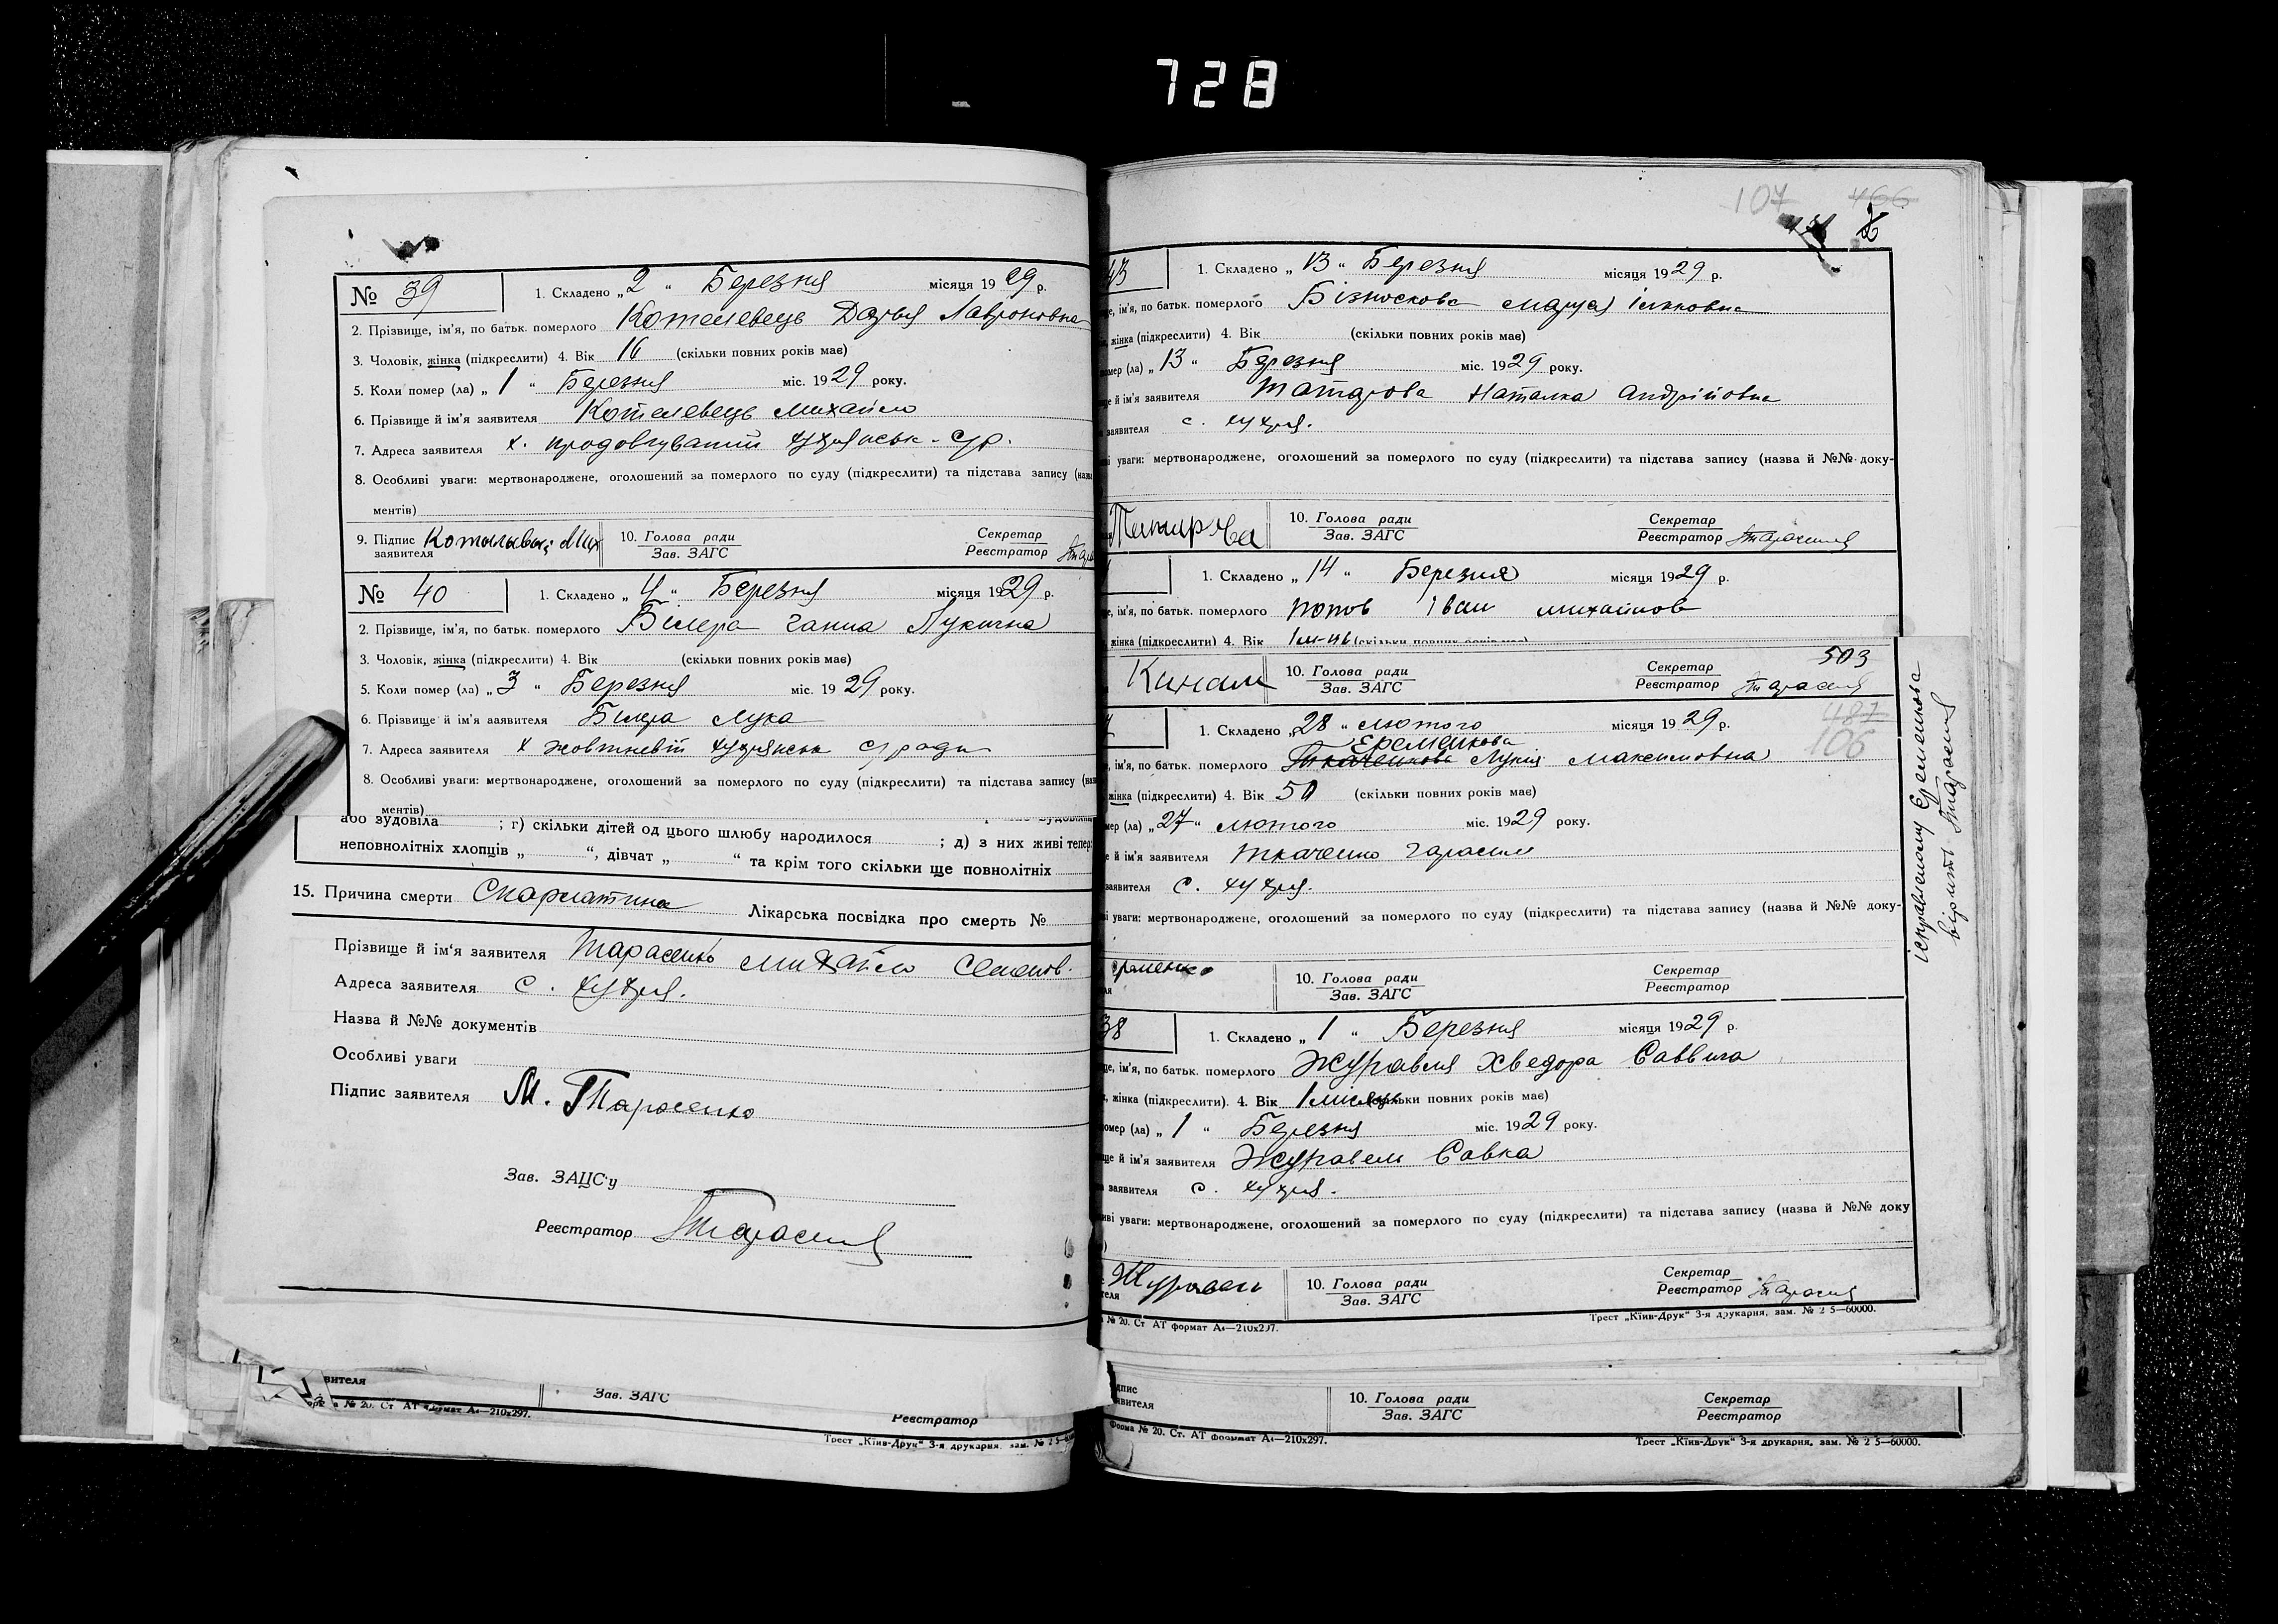 728
№ 39
1. Складено „2“ Березня місяця 1929 р.
2. Прізвище, ім'я, по батьк. померлого Котелевець Дарья Лавроновна
3. Чоловік, жінка (підкреслити) 4. Вік 16 (скільки повних років має)
5. Коли помер (ла) „1“ Березня міс. 1929 року.
6. Прізвище й ім'я заявителя Котелевець Михайло
7. Адреса заявителя х.
8. Особливі уваги: мертвонароджене, оголошений за померлого по суду (підкреслити) та підстава запису (назв
ментів)
9. Підпис заявителя
10. Голова ради Зав. ЗАГС
Секретар Реєстратор
№ 40
1. Складено „4“ Березня місяця 1929 р.
2. Прізвище, ім'я, по батьк. померлого Білера Ганна Лукична
3. Чоловік, жінка (підкреслити) 4. Вік (скільки повних років має)
5. Коли помер (ла) „3“ Березня міс. 1929 року.
6. Прізвище й ім'я заявителя Білера Лука
7. Адреса заявителя х
8. Особливі уваги: мертвонароджене, оголошений за померлого по суду (підкреслити) та підстава запису (наз
ментів)
або зудовіла ; г) скільки дітей од цього шлюбу народилося ; д) з них живі тепер
неповнолітніх хлопців „ “, дівчат „ “ та крім того скільки ще повнолітніх
15. Причина смерти Скарлатина Лікарська посвідка про смерть №
Прізвище й ім'я заявителя Тарасенко Михайло Семенов.
Адреса заявителя с.
Назва й №№ документів
Особливі уваги
Підпис заявителя М. Тарасенко
Зав. ЗАЦС'у
Реєстратор
вителя
Зав. ЗАГС
Реєстратор
№ 20. Ст АТ формат А4—210x297.
Трест „Київ-Друк“ 3-я друкарня, зам. № 2 5—60
107 466
43
1. Складено „13“ Березня місяця 1929 р.
е, ім'я, по батьк. померлого Бізноскова Марья Ільковна
жінка (підкреслити) 4. Вік (скільки повних років має)
мер (ла) „13“ Березня міс. 1929 року.
е й ім'я заявителя Татарова Наталка Андрійовна
заявителя с.
ві уваги: мертвонароджене, оголошений за померлого по суду (підкреслити) та підстава запису (назва й №№ доку-
10. Голова ради Зав. ЗАГС
Секретар Реєстратор
1. Складено „14“ Березня місяця 1929 р.
е, ім'я, по батьк. померлого Попов Іван Михайлов
жінка (підкреслити) 4. Вік 1 м-ць (скільки повних років має)
10. Голова ради Зав. ЗАГС
Секретар Реєстратор
503
1. Складено „28“ лютого місяця 1929 р.
487
106
Еременкова
, ім'я, по батьк. померлого Ткаченкова Лукія Максимовна
жінка (підкреслити) 4. Вік 50 (скільки повних років має)
мер (ла) „27“ лютого міс. 1929 року.
е й ім'я заявителя Ткаченко Гарасим
заявителя с.
ві уваги: мертвонароджене, оголошений за померлого по суду (підкреслити) та підстава запису (назва й №№ доку-
10. Голова ради Зав. ЗАГС
Секретар Реєстратор
Ісправленому Еременкова
вірить
38
1. Складено „1“ Березня місяця 1929 р.
ще, ім'я, по батьк. померлого Журавля Хведора Саввича
, жінка (підкреслити). 4. Вік 1 місяць (скільки повних років має)
омер (ла) „1“ Березня міс. 1929 року.
ще й ім'я заявителя Журавель Савка
заявителя с.
иві уваги: мертвонароджене, оголошений за померлого по суду (підкреслити) та підстава запису (назва й №№ доку
Журавель
10. Голова ради Зав. ЗАГС
Секретар Реєстратор
№ 20. Ст АТ формат А4—210x297.
Трест „Київ-Друк“ 3-я друкарня, зам. № 2 5—60000.
дпис
явителя
10. Голова ради Зав. ЗАГС
Секретар Реєстратор
Форма № 20. Ст. АТ формат А4—210x297.
Трест „Київ-Друк“ 3-я друкарня, зам. № 2 5—60000.